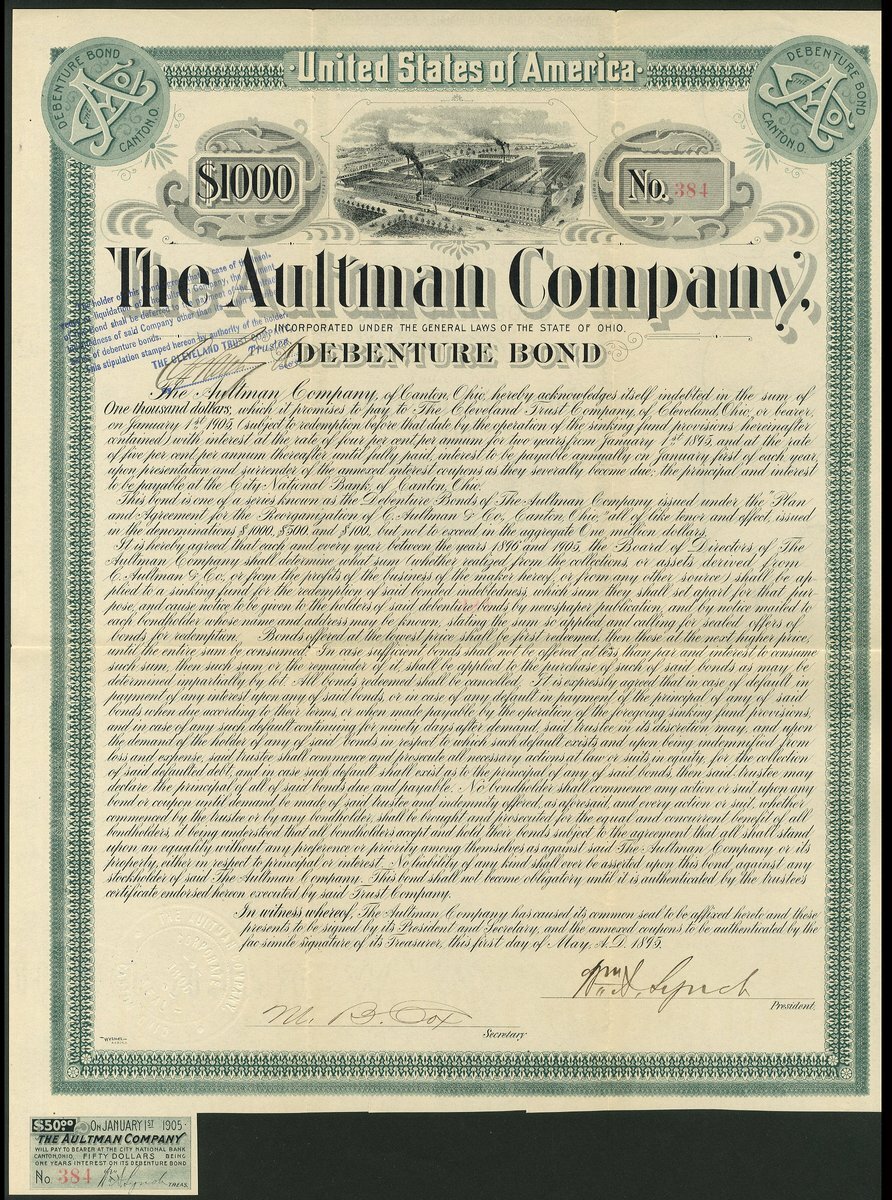 United States of America
DEBENTURE BOND
CANTON, O.
DEBENTURE BOND
CANTON, O.
$1000
No. 384
The Aultman Company,
INCORPORATED UNDER THE GENERAL LAWS OF THE STATE OF OHIO.
DEBENTURE BOND
The holder of this Bond agrees that in case of the insol-
liquidation of The Aultman Company, the payment
of this Bond shall be deferred to the payment of the
indebtedness of said Company other than its
of debenture bonds.
This stipulation stamped hereon by authority of the holder.
THE CLEVELAND TRUST COMPANY
Trustee
The Aultman Company, of Canton, Ohio, hereby acknowledges itself indebted in the sum of
One thousand dollars, which it promises to pay to The Cleveland Trust Company, of Cleveland, Ohio, or bearer,
on January 1st 1905, (subject to redemption before that date by the operation of the sinking fund provisions hereinafter
contained) with interest at the rate of four per cent. per annum for two years from January 1st 1895, and at the rate
of five per cent. per annum thereafter until fully paid, interest to be payable annually on January first of each year,
upon presentation and surrender of the annexed interest coupons as they severally become due; the principal and interest
to be payable at the City National Bank, of Canton, Ohio.
This bond is one of a series known as the Debenture Bonds of The Aultman Company issued under the "Plan
and Agreement for the Reorganization of C. Aultman & Co., Canton, Ohio," all of like tenor and effect, issued
in the denominations $1000, $500, and $100, but not to exceed in the aggregate One million dollars.
It is hereby agreed that each and every year between the years 1896 and 1905, the Board of Directors of The
Aultman Company shall determine what sum (whether realized from the collections, or assets derived from
C. Aultman & Co., or from the profits of the business of the maker hereof, or from any other source) shall be ap-
plied to a sinking fund for the redemption of said bonded indebtedness, which sum they shall set apart for that pur-
pose, and cause notice to be given to the holders of said debenture bonds by newspaper publication, and by notice mailed to
each bondholder whose name and address may be known, stating the sum so applied and calling for sealed offers of
bonds for redemption. Bonds offered at the lowest price shall be first redeemed, then those at the next higher price,
until the entire sum be consumed. In case sufficient bonds shall not be offered at less than par and interest to consume
such sum, then such sum or the remainder of it, shall be applied to the purchase of such of said bonds as may be
determined impartially by lot. All bonds redeemed shall be cancelled. It is expressly agreed that in case of default in
payment of any interest upon any of said bonds, or in case of any default in payment of the principal of any of said
bonds when due according to their terms, or when made payable by the operation of the foregoing sinking fund provisions,
and in case of any such default continuing for ninety days after demand, said trustee in its discretion may, and upon
the demand of the holder of any of said bonds in respect to which such default exists and upon being indemnified from
loss and expense, said trustee shall commence and prosecute all necessary actions at law or suits in equity, for the collection
of said defaulted debt, and in case such default shall exist as to the principal of any of said bonds, then said trustee may
declare the principal of all of said bonds due and payable. No bondholder shall commence any action or suit upon any
bond or coupon until demand be made of said trustee and indemnity offered, as aforesaid, and every action or suit, whether
commenced by the trustee or by any bondholder, shall be brought and prosecuted for the equal and concurrent benefit of all
bondholders, it being understood that all bondholders accept and hold their bonds subject to the agreement that all shall stand
upon an equality without any preference or priority among themselves as against said The Aultman Company or its
property, either in respect to principal or interest. No liability of any kind shall ever be asserted upon this bond against any
stockholder of said The Aultman Company. This bond shall not become obligatory until it is authenticated by the trustee's
certificate endorsed hereon executed by said Trust Company.
In witness whereof, The Aultman Company has caused its common seal to be affixed hereto and these
presents to be signed by its President and Secretary, and the annexed coupons to be authenticated by the
fac simile signature of its Treasurer, this first day of May, A.D. 1895.
THE AULTMAN COMPANY
CORPORATE
Wm. A. Lynch
President.
M. B. Cox
Secretary
$50.00 ON JANUARY 1ST 1905.
THE AULTMAN COMPANY
WILL PAY TO BEARER AT THE CITY NATIONAL BANK
CANTON, OHIO, FIFTY DOLLARS BEING
ONE YEARS INTEREST ON ITS DEBENTURE BOND
No. 384 Wm. A. Lynch TREAS.